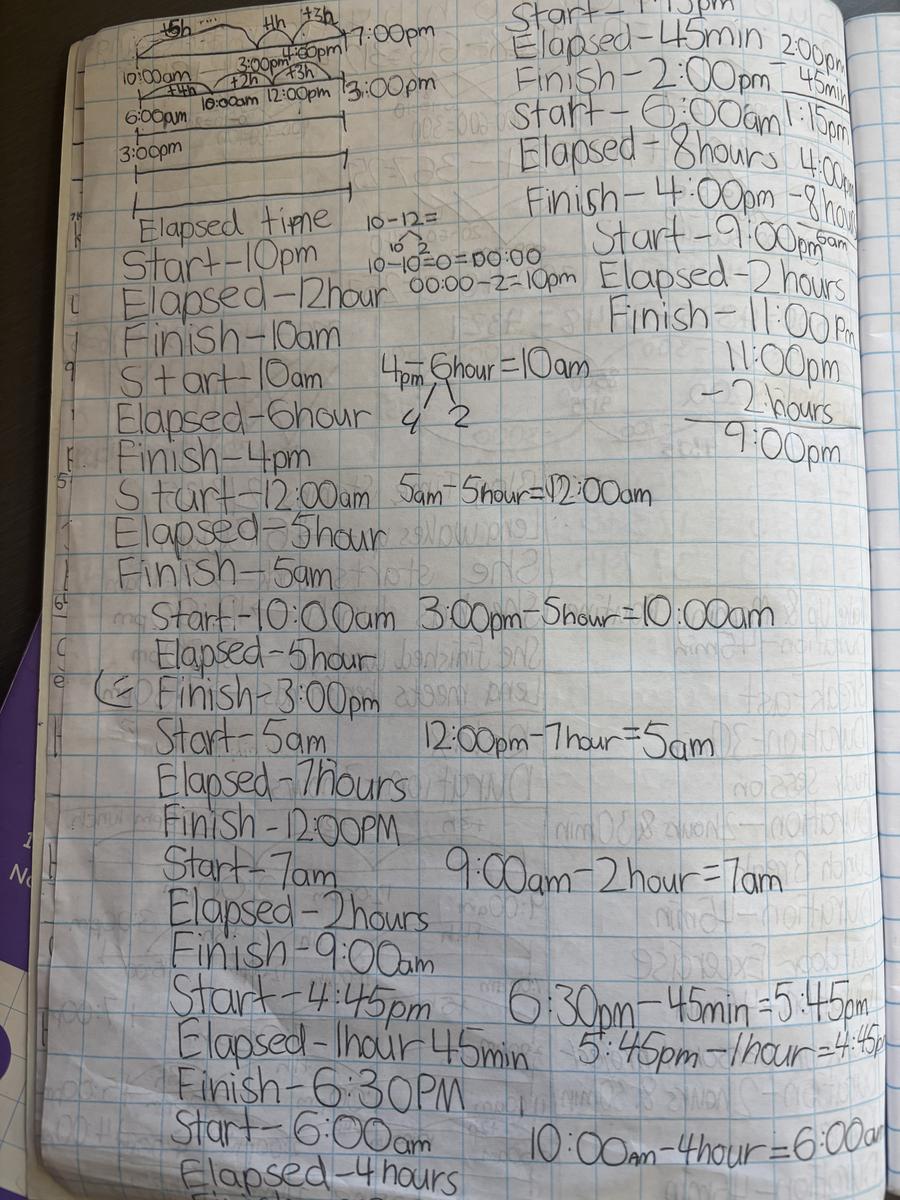 +5h +h +3h
7:00pm
3:00pm 4:00pm
10:00am +4h +2h +3h
10:00am 12:00pm 3:00pm
6:00am
3:00pm
Elapsed time
10-12=
10 2
Start-10pm 10-10=0=00:00
Elapsed-12hour 00:00-2=10pm
Finish-10am
Start-10am 4pm-6hour=10am
Elapsed-6hour 4 2
Finish-4pm
Start-12:00am 5am-5hour=12:00am
Elapsed-5hour
Finish-5am
Start-10:00am 3:00pm-5hour=10:00am
Elapsed-5hour
Finish-3:00pm
Start-5am 12:00pm-7hour=5am
Elapsed-7hours
Finish-12:00PM
Start-7am 9:00am-2hour=7am
Elapsed-2hours
Finish-9:00am
Start-4:45pm 6:30pm-45min=5:45pm
Elapsed-1hour 45min 5:45pm-1hour=4:45p
Finish-6:30PM
Start-6:00am 10:00AM-4hour=6:00am
Elapsed-4hours
Start-1:15pm
Elapsed-45min 2:00pm
Finish-2:00pm -45min
Start-6:00am 1:15pm
Elapsed-8hours 4:00pm
Finish-4:00pm -8hour
Start-9:00pm 6am
Elapsed-2hours
Finish-11:00pm
11:00pm
-2hours
9:00pm